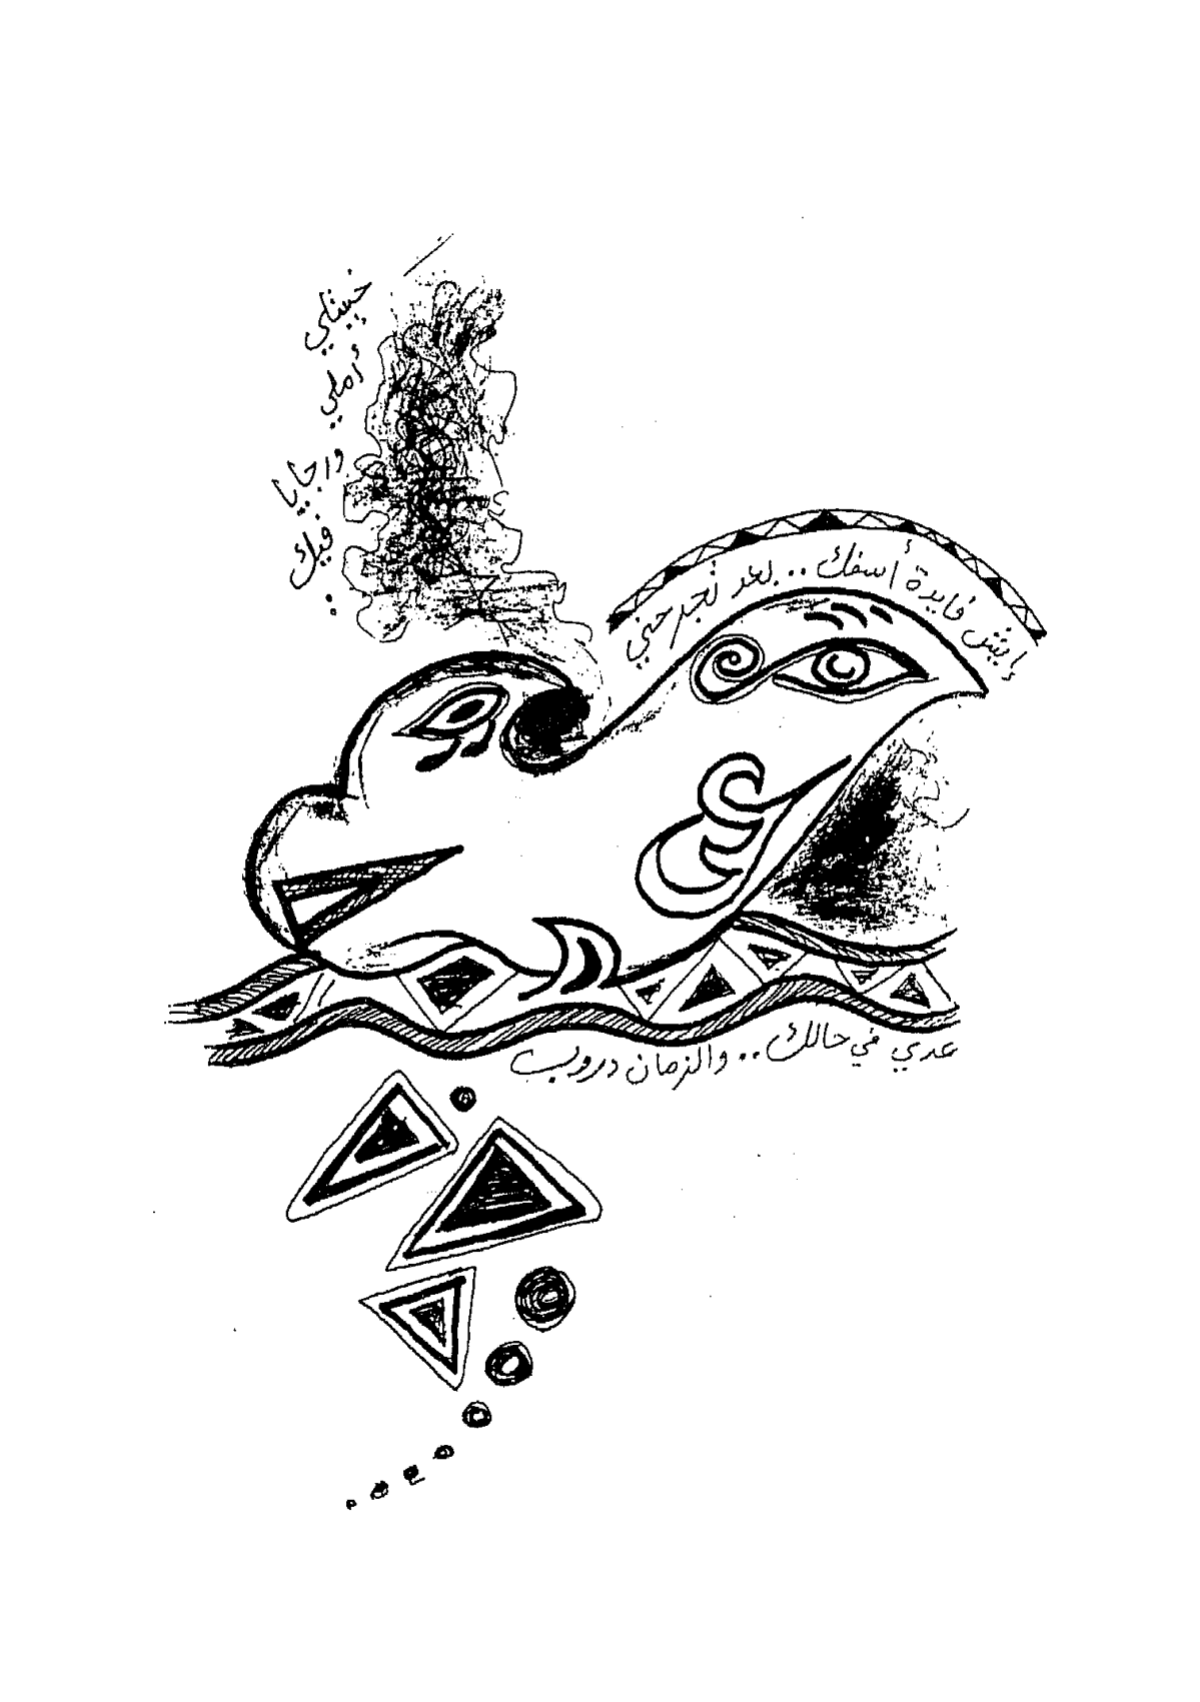 خيبتلي
أملي
ورجايا
فيك
إيش فايدة أسفك .. بعد تجرحني
عدي في حالك .. والزمان دروب